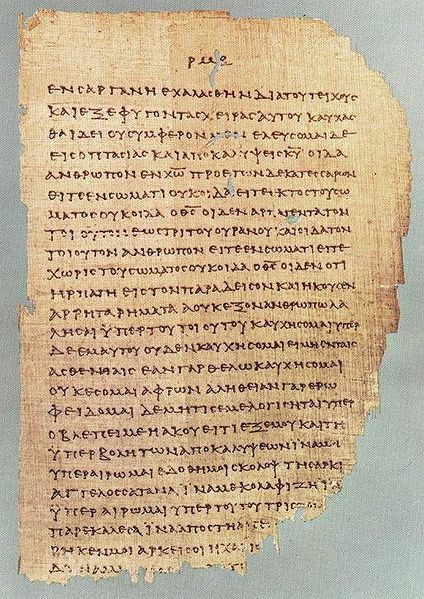 ΕΝϹΑΡΓΑΝΗΕΧΑΛΑϹΘΗΝΔΙΑΤΟΥΤΕΙΧΟΥϹ
ΚΑΙΕΞΕΦΥΓΟΝΤΑϹΧΕΙΡΑϹΑΥΤΟΥΚΑΥΧΑϹ
ΘΑΙΔΕΙΟΥϹΥΜΦΕΡΟΝΜΕΝΕΛΕΥϹΟΜΑΙΔΕ
ΕΙϹΟΠΤΑϹΙΑϹΚΑΙΑΠΟΚΑΛΥΨΕΙϹΚ̅Υ̅ΟΙΔΑ
ΑΝΘΡΩΠΟΝΕΝΧ̅Ω̅ΠΡΟΕΤΩΝΔΕΚΑΤΕϹϹΑΡΩΝ
ΕΙΤΕΕΝϹΩΜΑΤΙΟΥΚΟΙΔΑΕΙΤΕΕΚΤΟϹΤΟΥϹΩ
ΜΑΤΟϹΟΥΚΟΙΔΑΟΘ̅Ϲ̅ΟΙΔΕΝΑΡΠΑΓΕΝΤΑΤΟΝ
ΤΟΙΟΥΤΟΝΕΩϹΤΡΙΤΟΥΟΥΡΑΝΟΥΚΑΙΟΙΔΑΤΟΝ
ΤΟΙΟΥΤΟΝΑΝΘΡΩΠΟΝΕΙΤΕΕΝϹΩΜΑΤΙΕΙΤΕ
ΧΩΡΙϹΤΟΥϹΩΜΑΤΟϹΟΥΚΟΙΔΑΟΘ̅Ϲ̅ΟΙΔΕΝΟΤΙ
ΗΡΠΑΓΗΕΙϹΤΟΝΠΑΡΑΔΕΙϹΟΝΚΑΙΗΚΟΥϹΕΝ
ΑΡΡΗΤΑΡΗΜΑΤΑΑΟΥΚΕΞΟΝΑΝΘΡΩΠΩΛΑ
ΛΗϹΑΙΥΠΕΡΤΟΥΤΟΙΟΥΤΟΥΚΑΥΧΗϹΟΜΑΙΥΠΕΡ
ΔΕΕΜΑΥΤΟΥΟΥΔΕΝΚΑΥΧΗϹΟΜΑΙΕΙΜΗΕΝΤΑΙϹ
ΑϹΘΕΝΕΙΑΙϹΕΑΝΓΑΡΘΕΛΩΚΑΥΧΗϹΟΜΑΙ
ΟΥΚΕϹΟΜΑΙΑΦΡΩΝΑΛΗΘΕΙΑΝΓΑΡΕΡΩ
ΦΕΙΔΟΜΑΙΔΕΜΗΤΙϹΕΜΕΛΟΓΙϹΗΤΑΙΥΠΕΡ
ΟΒΛΕΠΕΙΜΕΗΑΚΟΥΕΙΤΙΕΞΕΜΟΥΚΑΙΤΗ
ΥΠΕΡΒΟΛΗΤΩΝΑΠΟΚΑΛΥΨΕΩΝΙΝΑΜΗ
ΥΠΕΡΑΙΡΩΜΑΙΕΔΟΘΗΜΟΙϹΚΟΛΟΨΤΗϹΑΡΚΙ
ΑΓΓΕΛΟϹϹΑΤΑΝΑΙΝΑΜΕΚΟΛΑΦΙΖΗΙΝ
ΥΠΕΡΑΙΡΩΜΑΙΥΠΕΡΤΟΥΤΟΥΤΡΙϹ
ΠΑΡΕΚΑΛΕϹΑΙΝΑΑΠΟϹΤΗΑ
ΡΗΚΕΝΜΟΙΑΡΚΕΙϹΟΙΗΧΑΡΙϹ